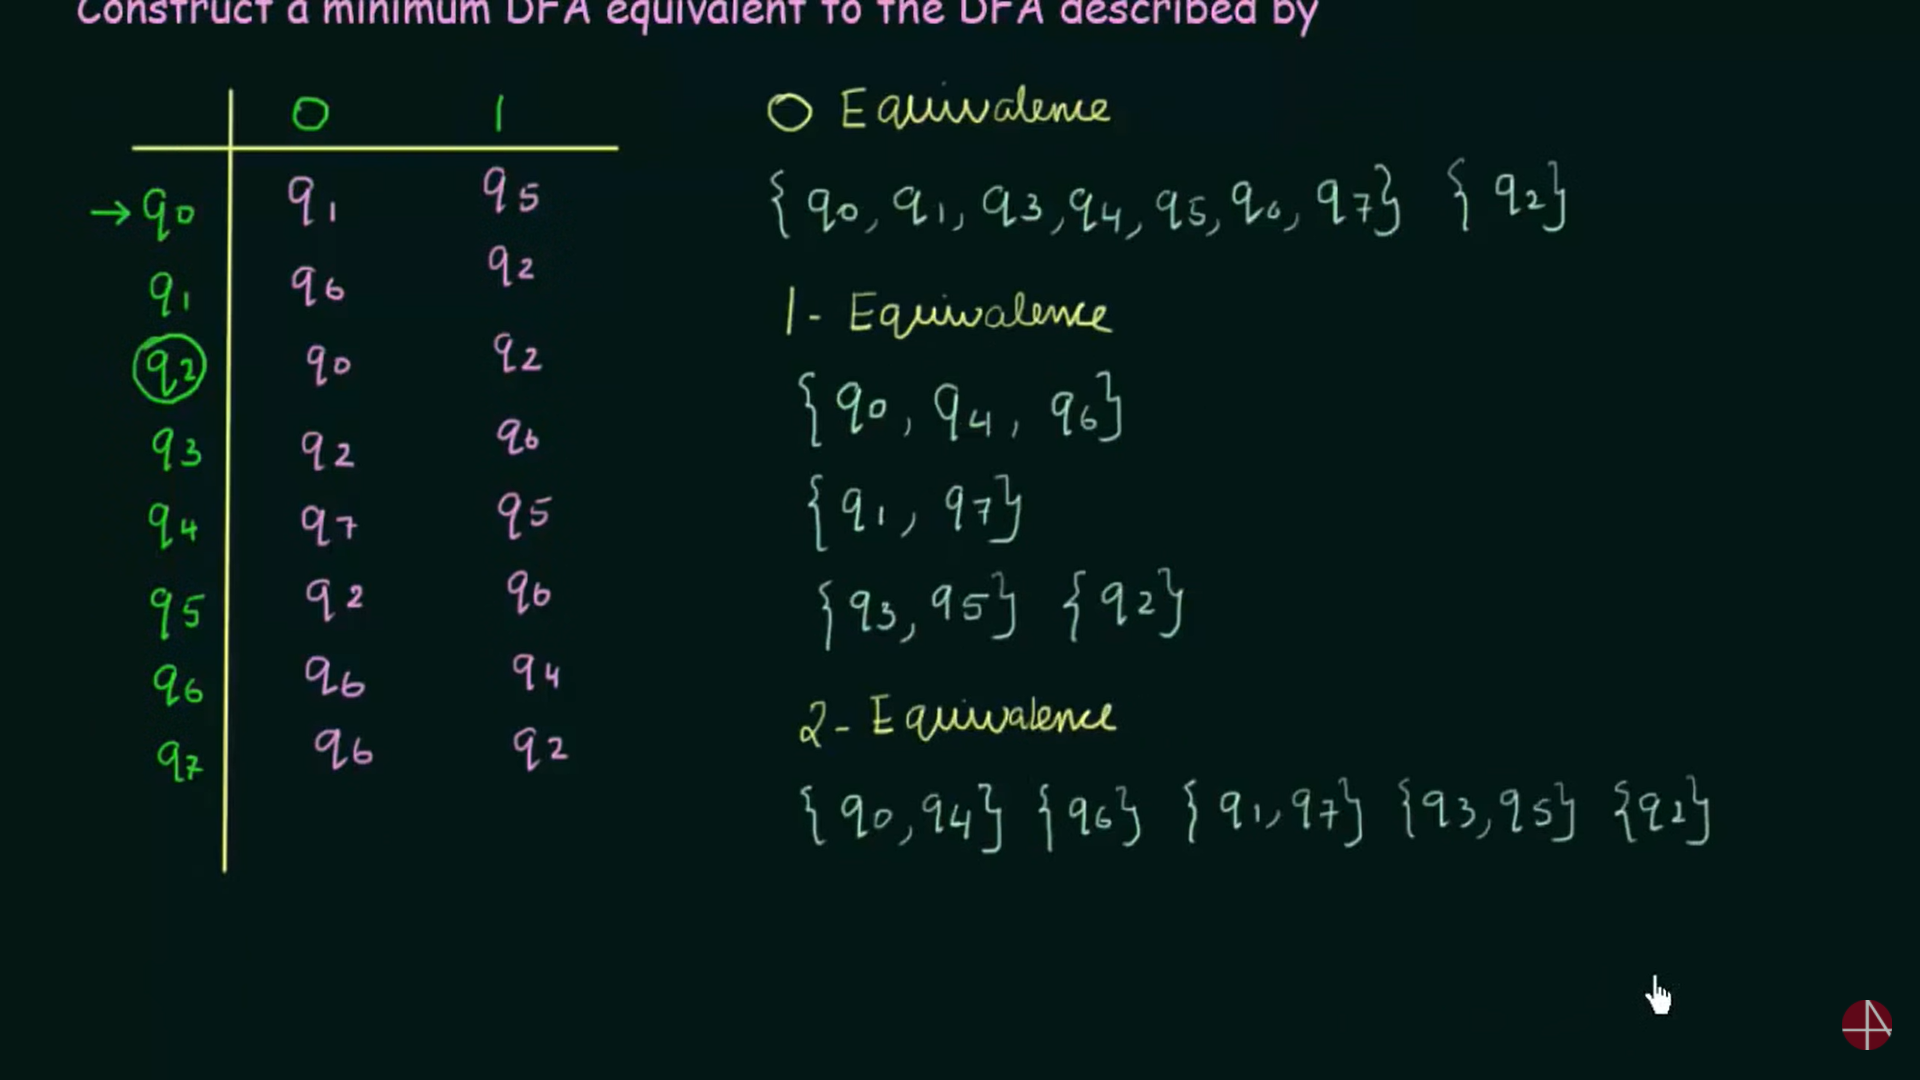 Construct a minimum DFA equivalent to the DFA described by
0 1
→q0 q1 q5
q1 q6 q2
q2 q0 q2
q3 q2 q6
q4 q7 q5
q5 q2 q6
q6 q6 q4
q7 q6 q2
0 Equivalence
{q0, q1, q3, q4, q5, q6, q7} {q2}
1- Equivalence
{q0, q4, q6}
{q1, q7}
{q3, q5} {q2}
2- Equivalence
{q0, q4} {q6} {q1, q7} {q3, q5} {q2}